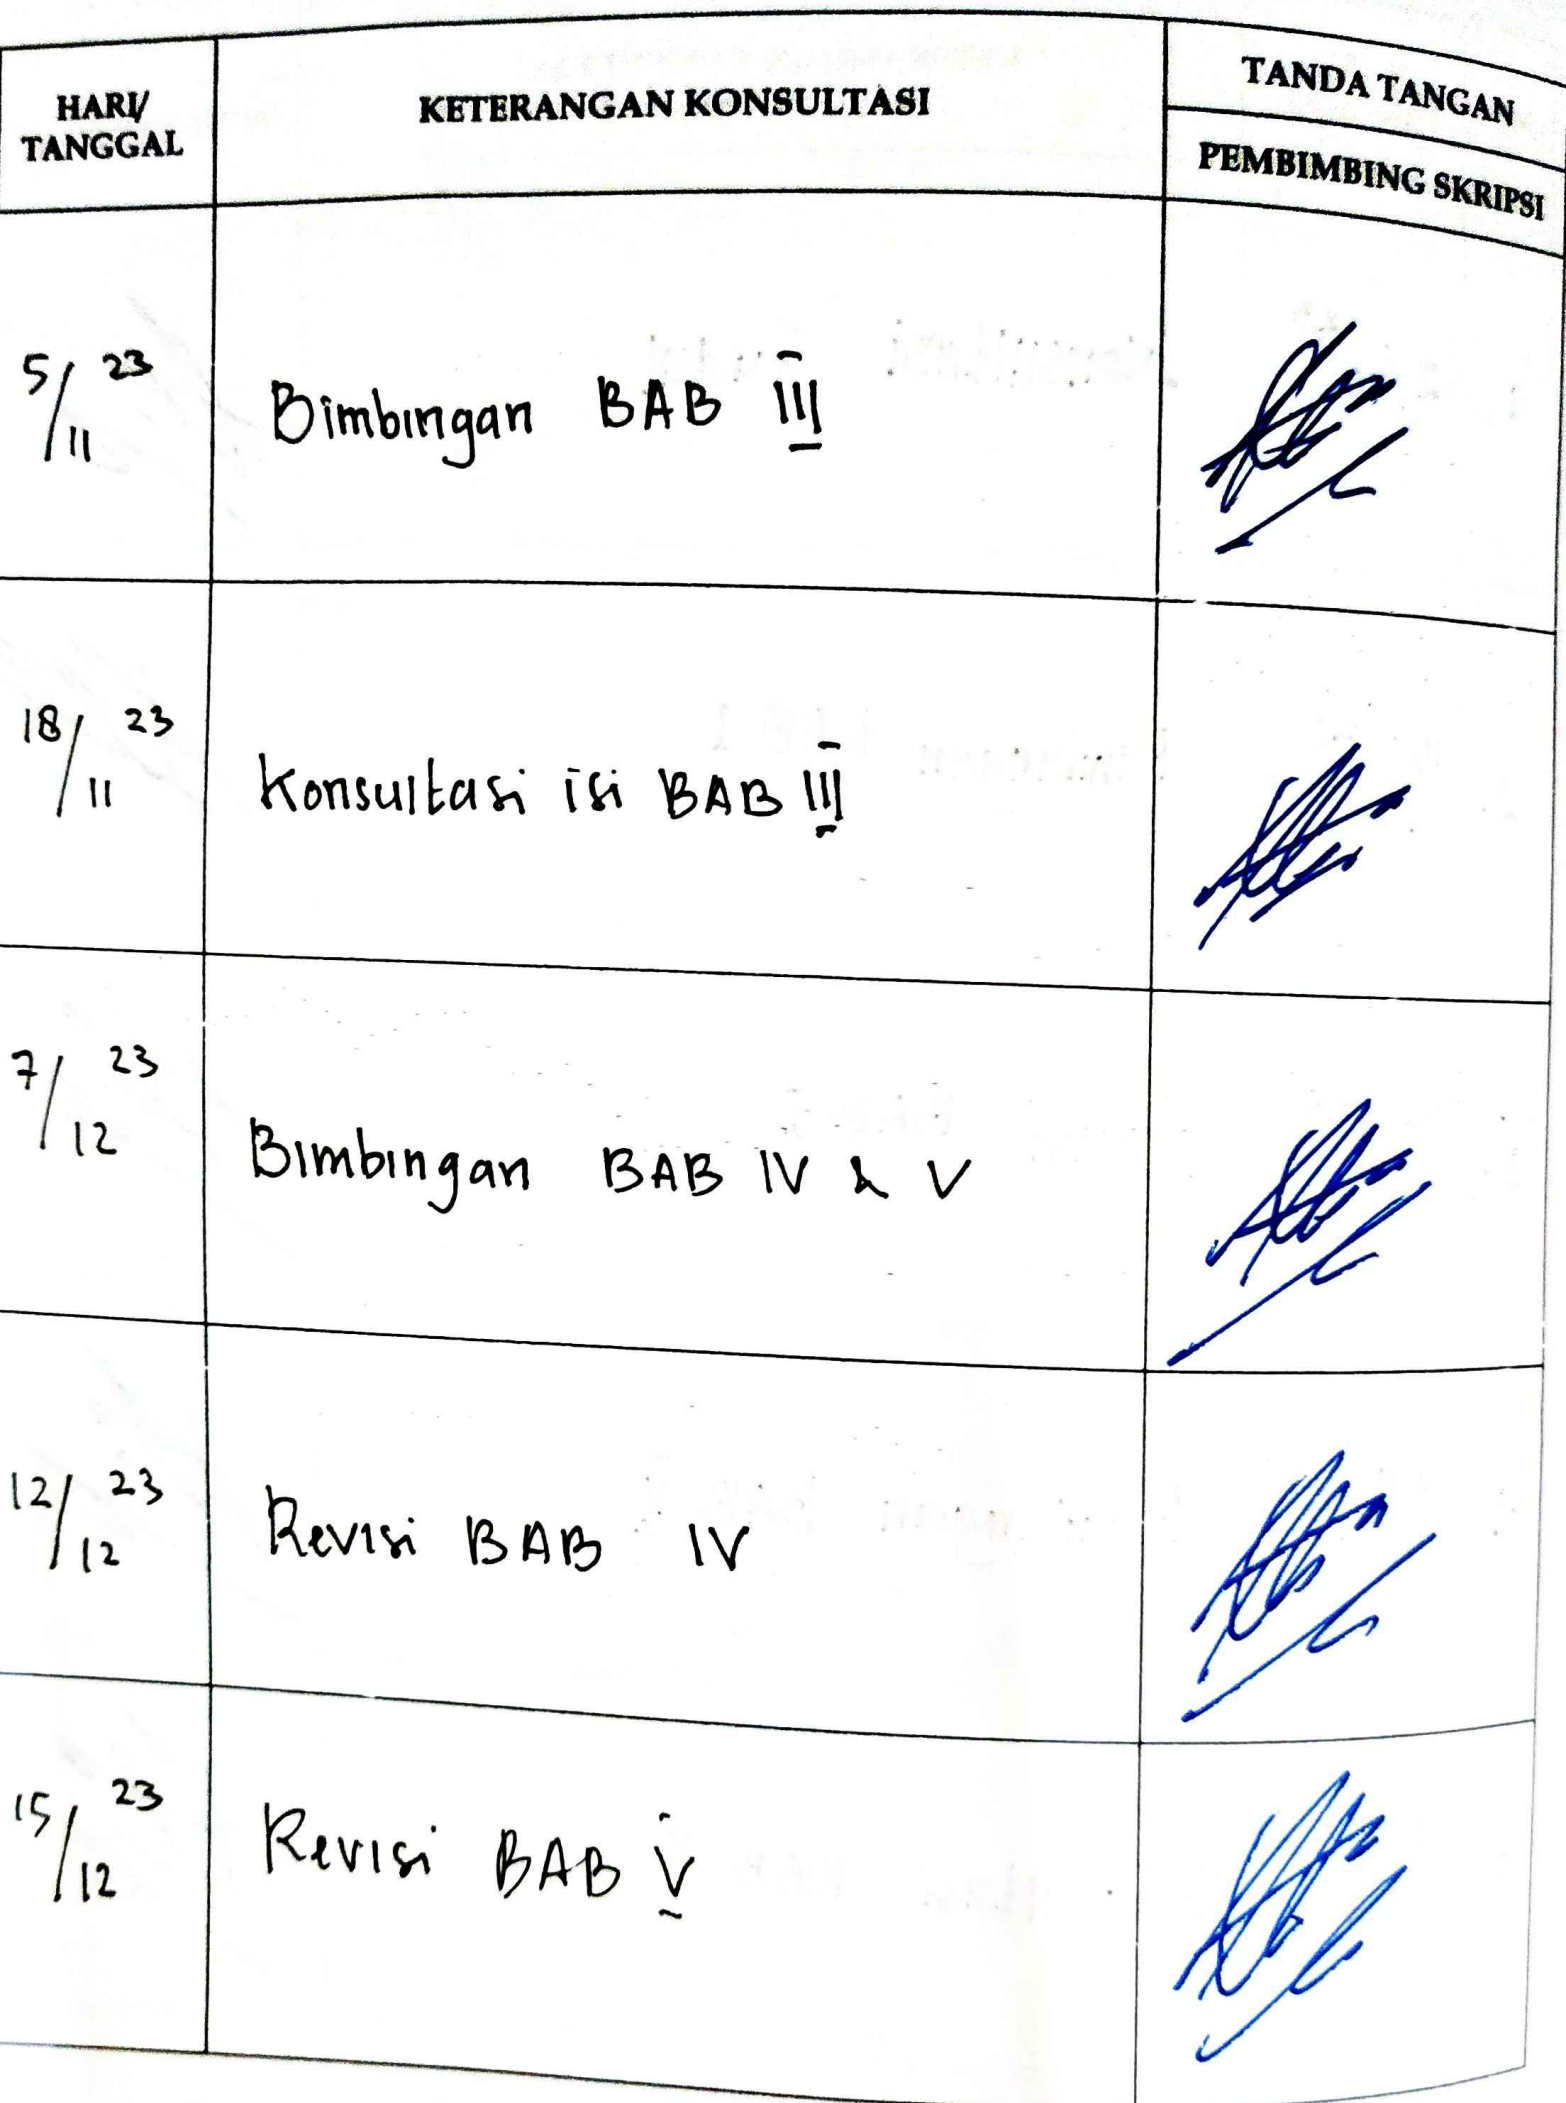 HARI/
TANGGAL
KETERANGAN KONSULTASI
TANDA TANGAN
PEMBIMBING SKRIPSI
5/11 23
Bimbingan BAB III
18/11 23
Konsultasi isi BAB III
7/12 23
Bimbingan BAB IV & V
12/12 23
Revisi BAB IV
15/12 23
Revisi BAB V